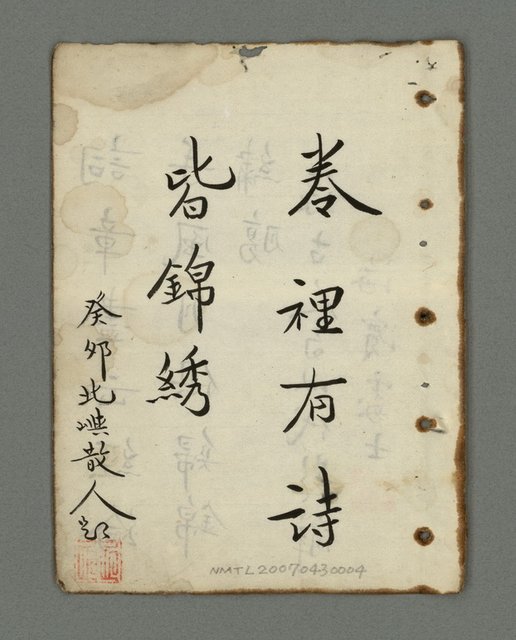 卷裡有詩
皆錦綉
癸卯北嶼散人題
NMTL20070430004